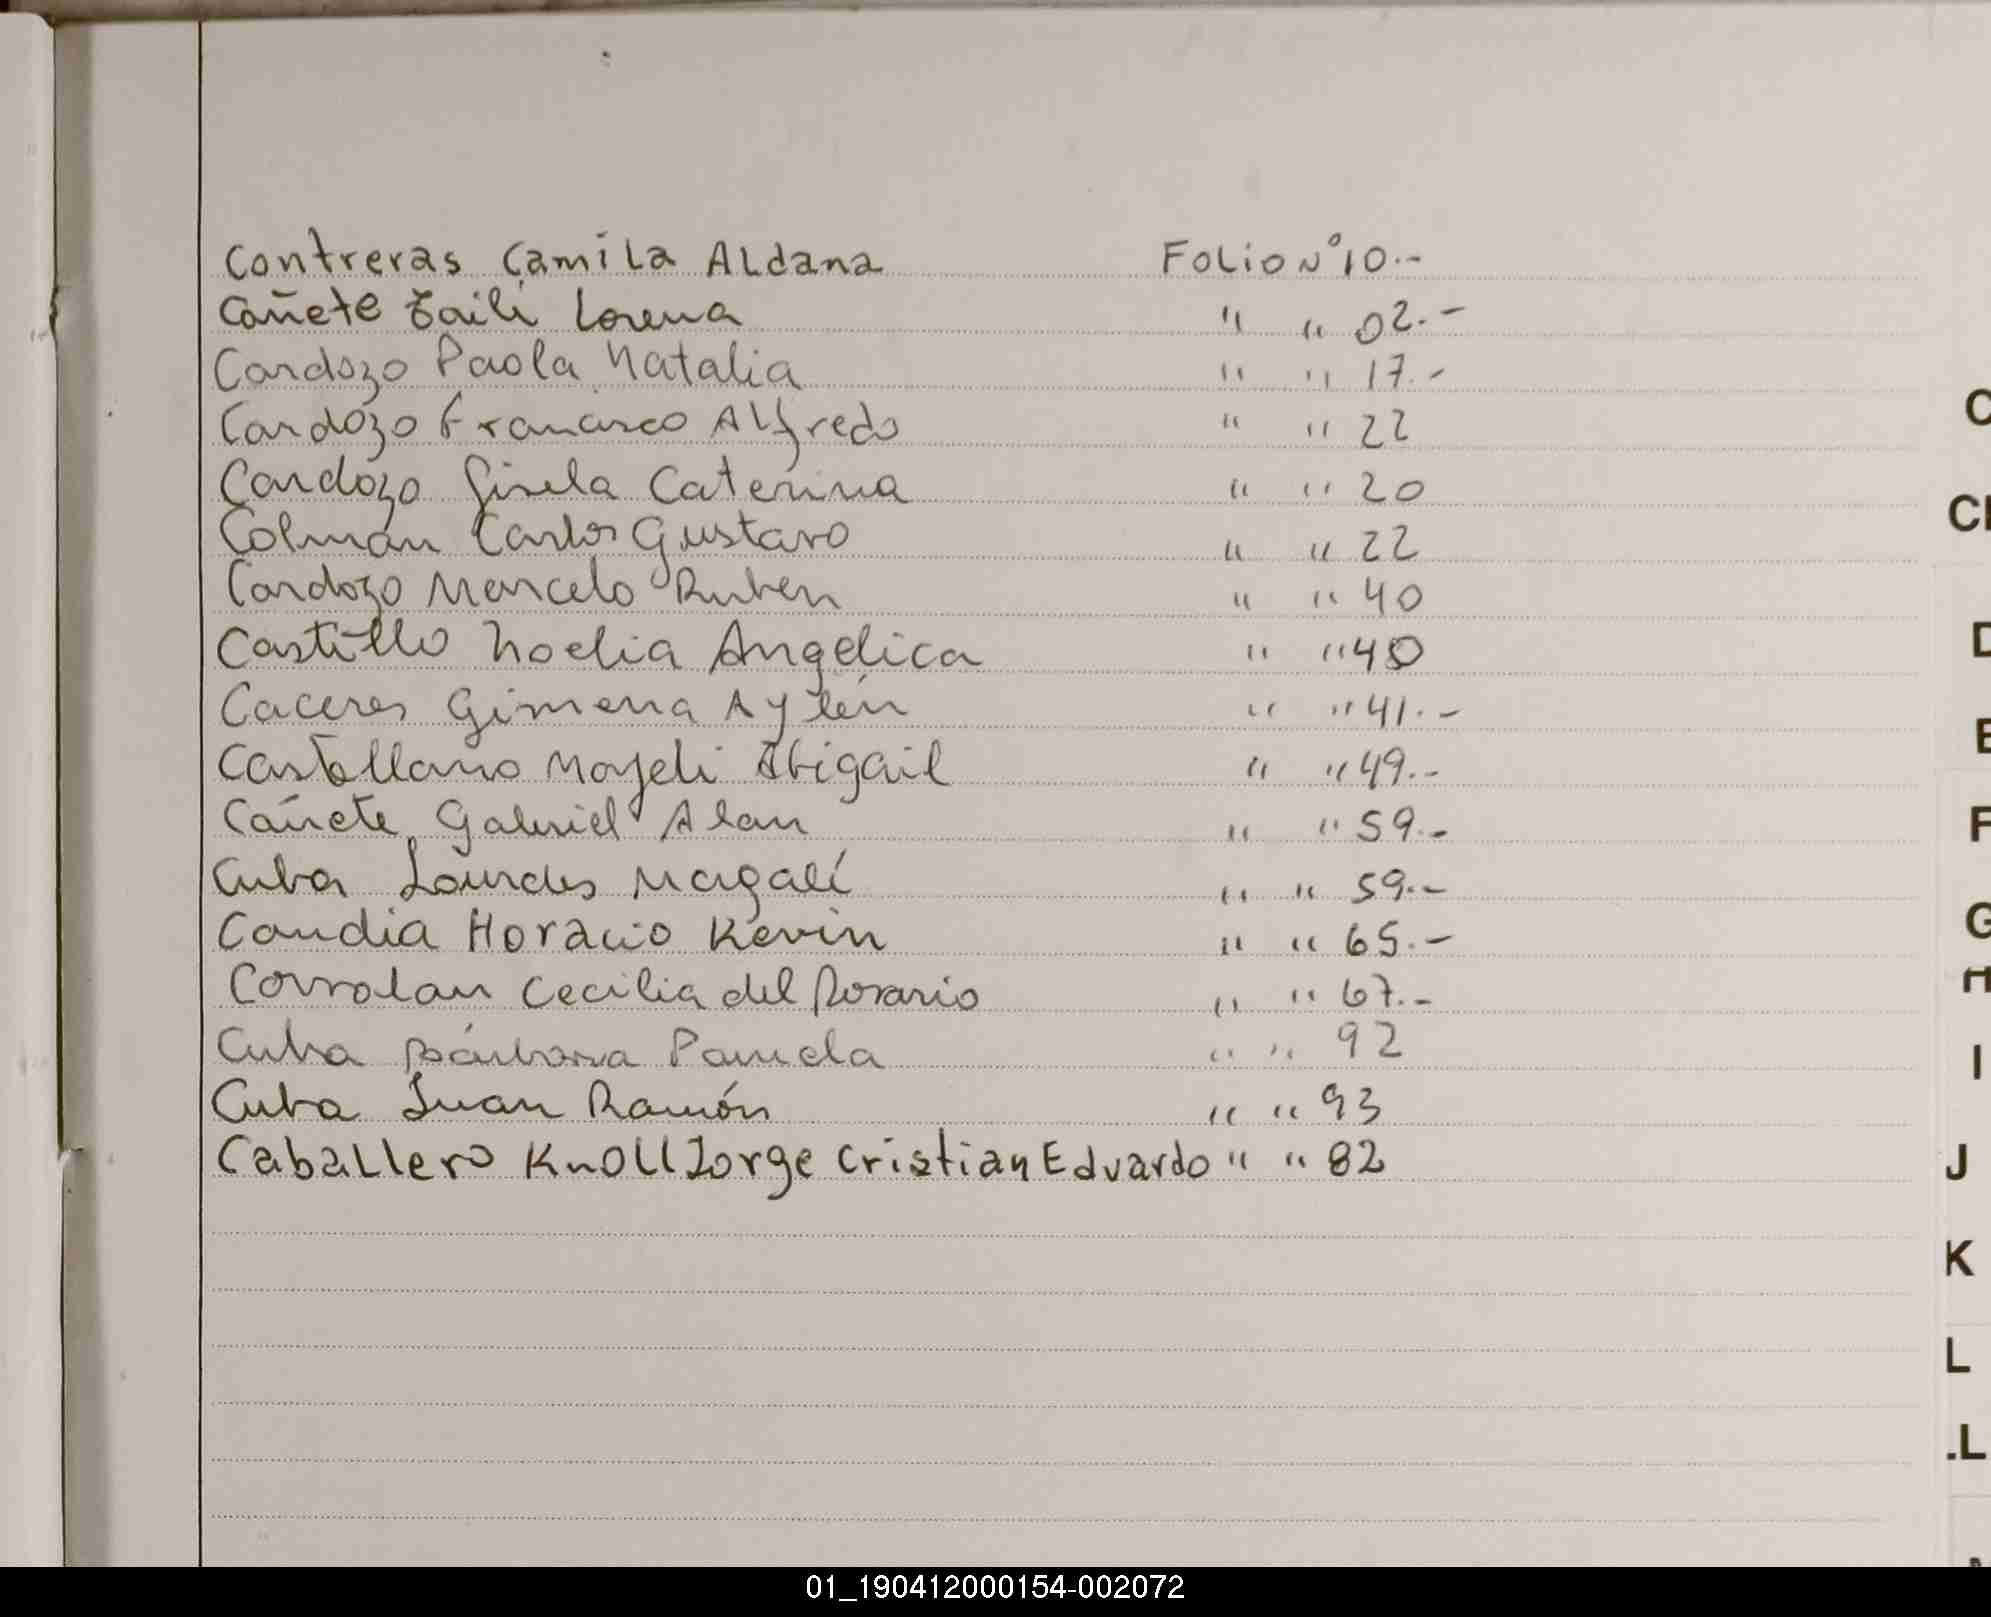 Contreras Camila Aldana Folio N° 10.-
Cañete Zaili Lorena " " 02.-
Cardozo Paola Natalia " " 17.-
Cardozo Francisco Alfredo " " 22
Cardozo Gisela Caterina " " 20
Colman Carlos Gustavo " " 22
Cardozo Marcelo Ruben " " 40
Castillo Noelia Angelica " " 40
Caceres Gimena Aylén " " 41.-
Castellano Mayeli Abigail " " 49.-
Cañete Gabriel Alan " " 59.-
Cuba Lourdes Magalí " " 59.-
Candia Horacio Kevin " " 65.-
Corrolan Cecilia del Rosario " " 67.-
Cuba Bárbara Pamela " " 92
Cuba Juan Ramón " " 93
Caballero Knoll Jorge Cristian Eduardo " " 82
C
D
E
F
G
H
I
J
K
L
01_190412000154-002072